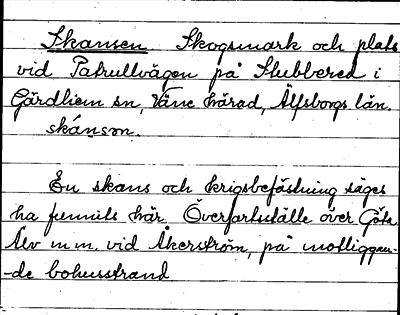 Skansen Skogsmark och plats
vid Patrullvägen på Stubbered i
Gärdhem sn, Väne härad, Älfsborgs län.
skánsøn.
En skans och krigsbefästning säges
ha funnits här. Överfartsställe över Göta
Älv m m. vid Åkerström, på motliggan-
-de bohusstrand